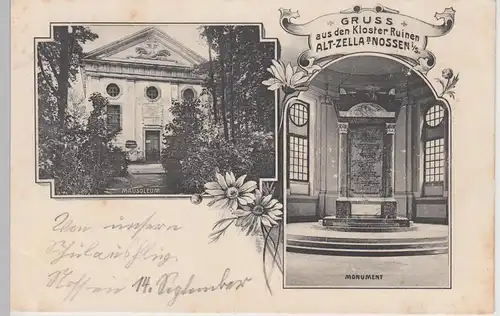 GRUSS
aus den Kloster Ruinen
ALT-ZELLA b/ NOSSEN i/S.
MAUSOLEUM
MONUMENT
Von unsere
Schulausflug
Nossen 14. September